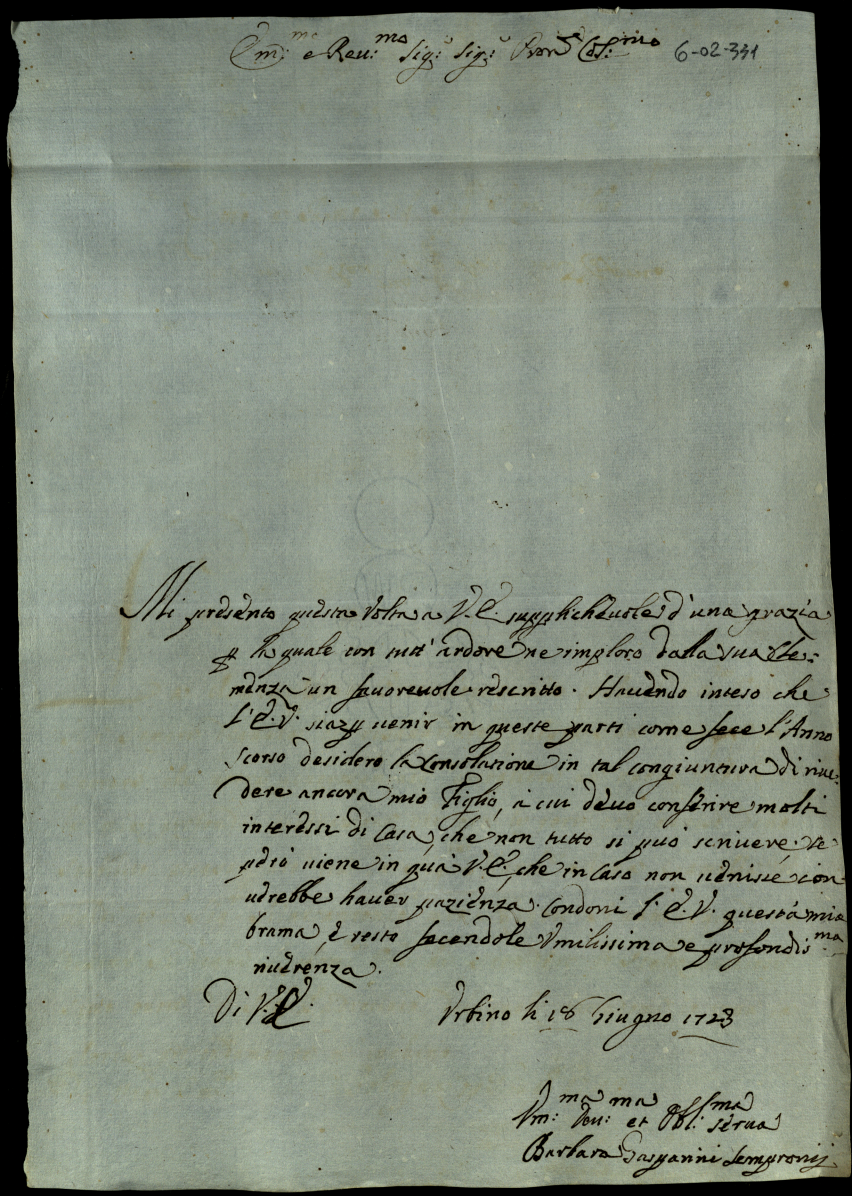 Em:mo e Reu:mo Sig:r Sig:r Pron Col:mo 6-02-341
Mi presento questa volta a V.E. supplicheuole d'una grazia
p la quale con tutt' ardore ne imploro dalla sua Cle:
menza un fauoreuole rescritto. Hauendo inteso che
l'E.V. sia p uenir in queste parti come fece l'Anno
scorso desidero la consolazione in tal congiuntura di riue-
dere ancora mio Figlio, à cui deuo conferire molti
interessi di Casa, che non tutto si può scriuere, se
però uiene in quà V.E. che in caso non uenisse con-
uerebbe hauer pazienza. Condoni l'E.V. questa mia
brama, e resto facendole Vmilissima e profondis:ma
riuerenza.
Di V.E. Vrbino li 16 Giugno 1723
Vm:ma Deu:ma et Obl:ma Serua
Barbara Gasparini Sempronij